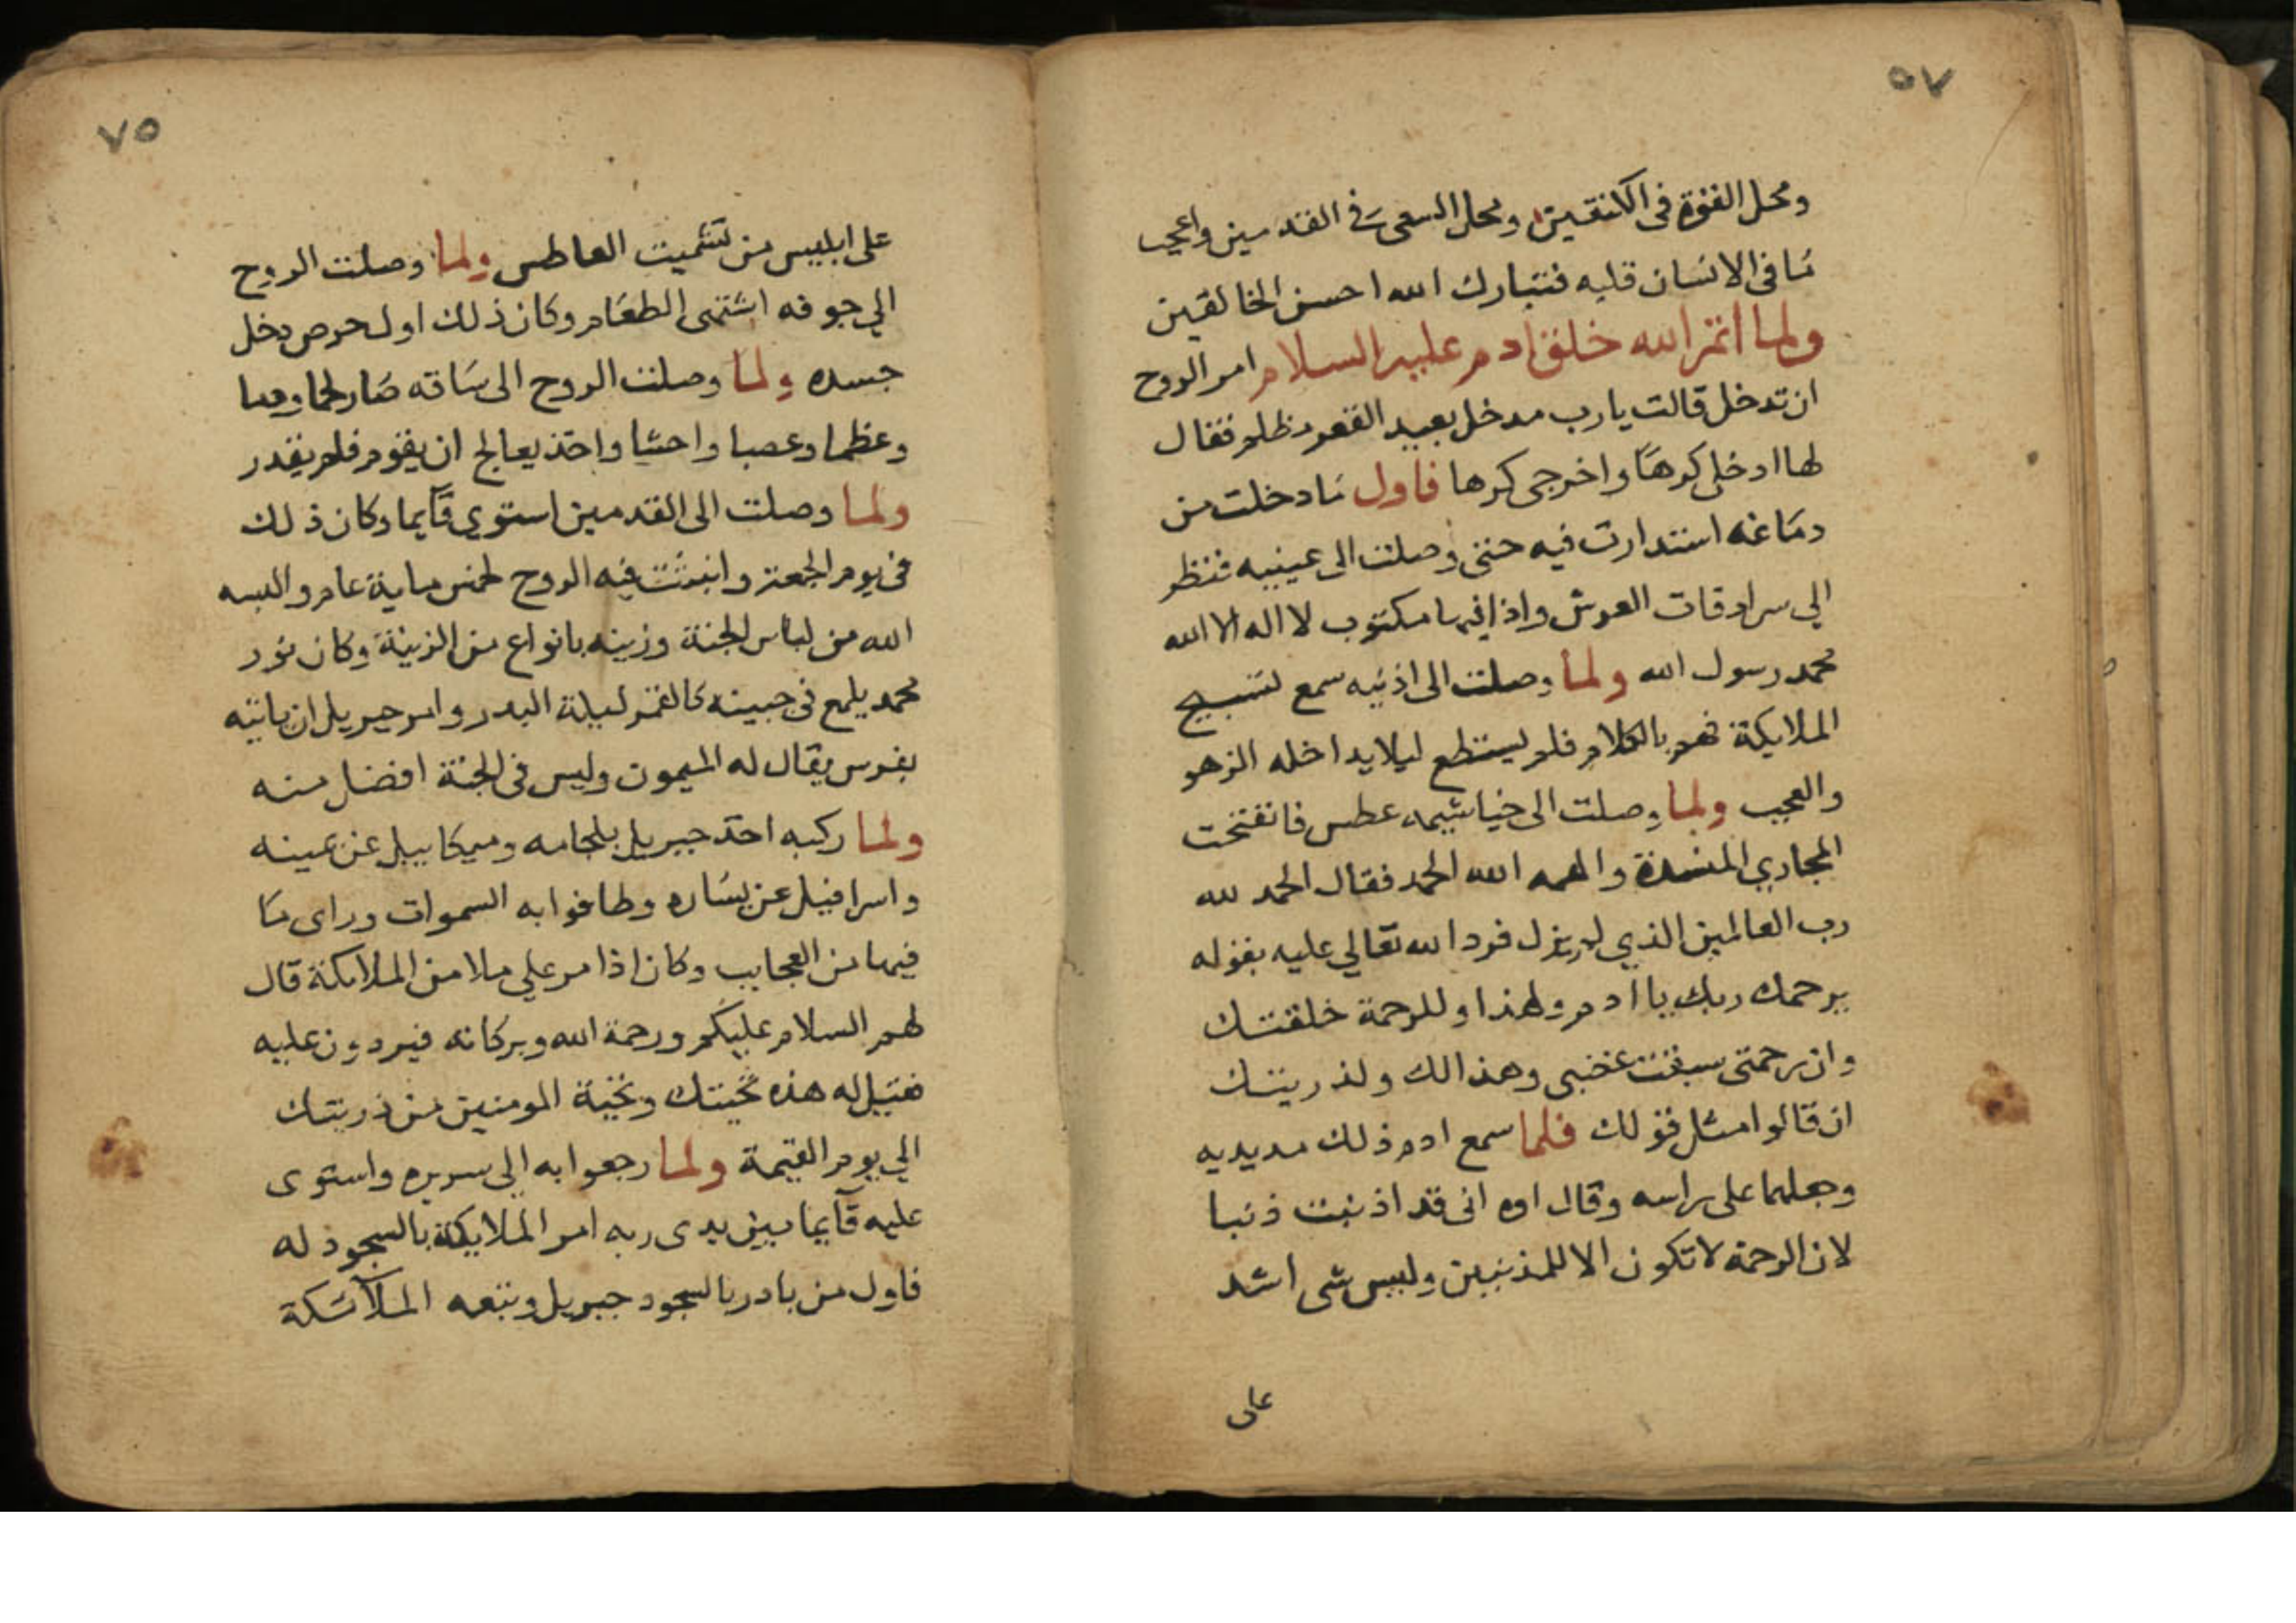 ٥٧
ومحل القوة في الكتفين ومحل السعي في القدمين واعجب
ما في الانسان قلبه فتبارك الله احسن الخالقين
ولما اتم الله خلق ادم عليه السلام امر الروح
ان تدخل قالت يا رب مدخل بعيد القعر مظلم فقال
لها ادخلي كرها واخرجي كرها فاول ما دخلت من
دماغه استدارت فيه حتى وصلت الى عينيه فنظر
الي سرادقات العرش واذا فيها مكتوب لا اله الا الله
محمد رسول الله ولما وصلت الى اذنيه سمع تسبيح
الملايكة فهم بالكلام فلم يستطع ليلا يداخله الزهو
والعجب ولما وصلت الى خياشيمه عطس فانفتحت
المجاري المنسدة والهمه الله الحمد فقال الحمد لله
رب العالمين الذي لم يزل فرد الله تعالي عليه بقوله
يرحمك ربك يا ادم ولهذا وللرحمة خلقتك
وان رحمتي سبقت غضبي وهذا لك ولذريتك
ان قالوا مثل قولك فلما سمع ادم ذلك مد يديه
وجعلهما على راسه وقال اوه اني قد اذنبت ذنبا
لان الرحمة لا تكون الا للمذنبين وليس شي اشد
على
٧٥
على ابليس من تشميت العاطس ولما وصلت الروح
الي جوفه اشتهى الطعام وكان ذلك اول حرص دخل
جسده ولما وصلت الروح الى ساقه صار لحما ودما
وعظما وعصبا واحشا واخذ يعالج ان يقوم فلم يقدر
ولما وصلت الى القدمين استوي قايما وكان ذلك
في يوم الجمعة وانبثت فيه الروح لخمس ماية عام والبسه
الله من لباس الجنة وزينه بانواع من الزينة وكان نور
محمد يلمع في جبينه كالقمر ليلة البدر وامر جبريل ان ياتيه
بفرس يقال له الميمون وليس في الجنة افضل منه
ولما ركبه اخذ جبريل بلجامه وميكاييل عن يمينه
واسرافيل عن يساره وطافوا به السموات وراى ما
فيها من العجايب وكان اذا مر علي ملا من الملايكة قال
لهم السلام عليكم ورحمة الله وبركاته فيردون عليه
فقيل له هذه تحيتك وتحية المومنين من ذريتك
الي يوم القيمة ولما رجعوا به الي سريره واستوى
عليه قايما بين يدي ربه امر الملايكة بالسجود له
فاول من بادر بالسجود جبريل وتبعه الملائكة